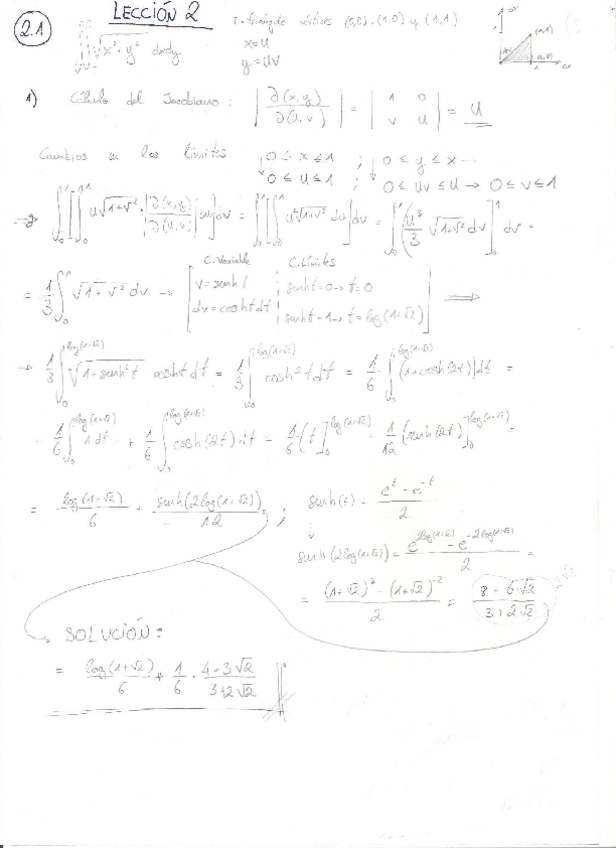 2.1 LECCIÓN 2
∬ √(x²+y²) dxdy T = triángulo vértices (0,0), (1,0) y (1,1)
x=u
y=uv
1) Cálculo del Jacobiano: |∂(x,y)/∂(u,v)| = |1 0; v u| = u
Cambios en los límites 0≤x≤1 ; 0≤y≤x
0≤u≤1 ; 0≤uv≤u → 0≤v≤1
→ ∫₀¹[∫₀¹ u√(1+v²) · |∂(x,y)/∂(u,v)| du]dv = ∫₀¹[∫₀¹ u²√(1+v²) du]dv = ∫₀¹(u³/3 √(1+v²) dv]₀¹ dv =
C. Variable C. Límites
= 1/3 ∫₀¹ √(1+v²) dv → [v = senh t ; senht=0 → t=0
dv = cosht dt ; senht=1 → t=log(1+√2)] ⟹
→ 1/3 ∫₀^log(1+√2) √(1+senh²t) cosht dt = 1/3 ∫₀^log(1+√2) cosh²t dt = 1/6 ∫₀^log(1+√2) (1+cosh(2t))dt =
1/6 ∫₀^log(1+√2) 1dt + 1/6 ∫₀^log(1+√2) cosh(2t) dt = 1/6 (t]₀^log(1+√2) 1/12 (senh(2t)]₀^log(1+√2) =
= log(1+√2)/6 + senh(2log(1+√2))/12 = ; senh(t) = (eᵗ - e⁻ᵗ)/2
↓
senh(2log(1+√2)) = (e^(2log(1+√2)) - e^(-2log(1+√2)))/2 =
= ((1+√2)² - (1+√2)⁻²)/2 = (8+6√2)/(3+2√2)
SOLUCIÓN:
= log(1+√2)/6 + 1/6 · (4+3√2)/(3+2√2)